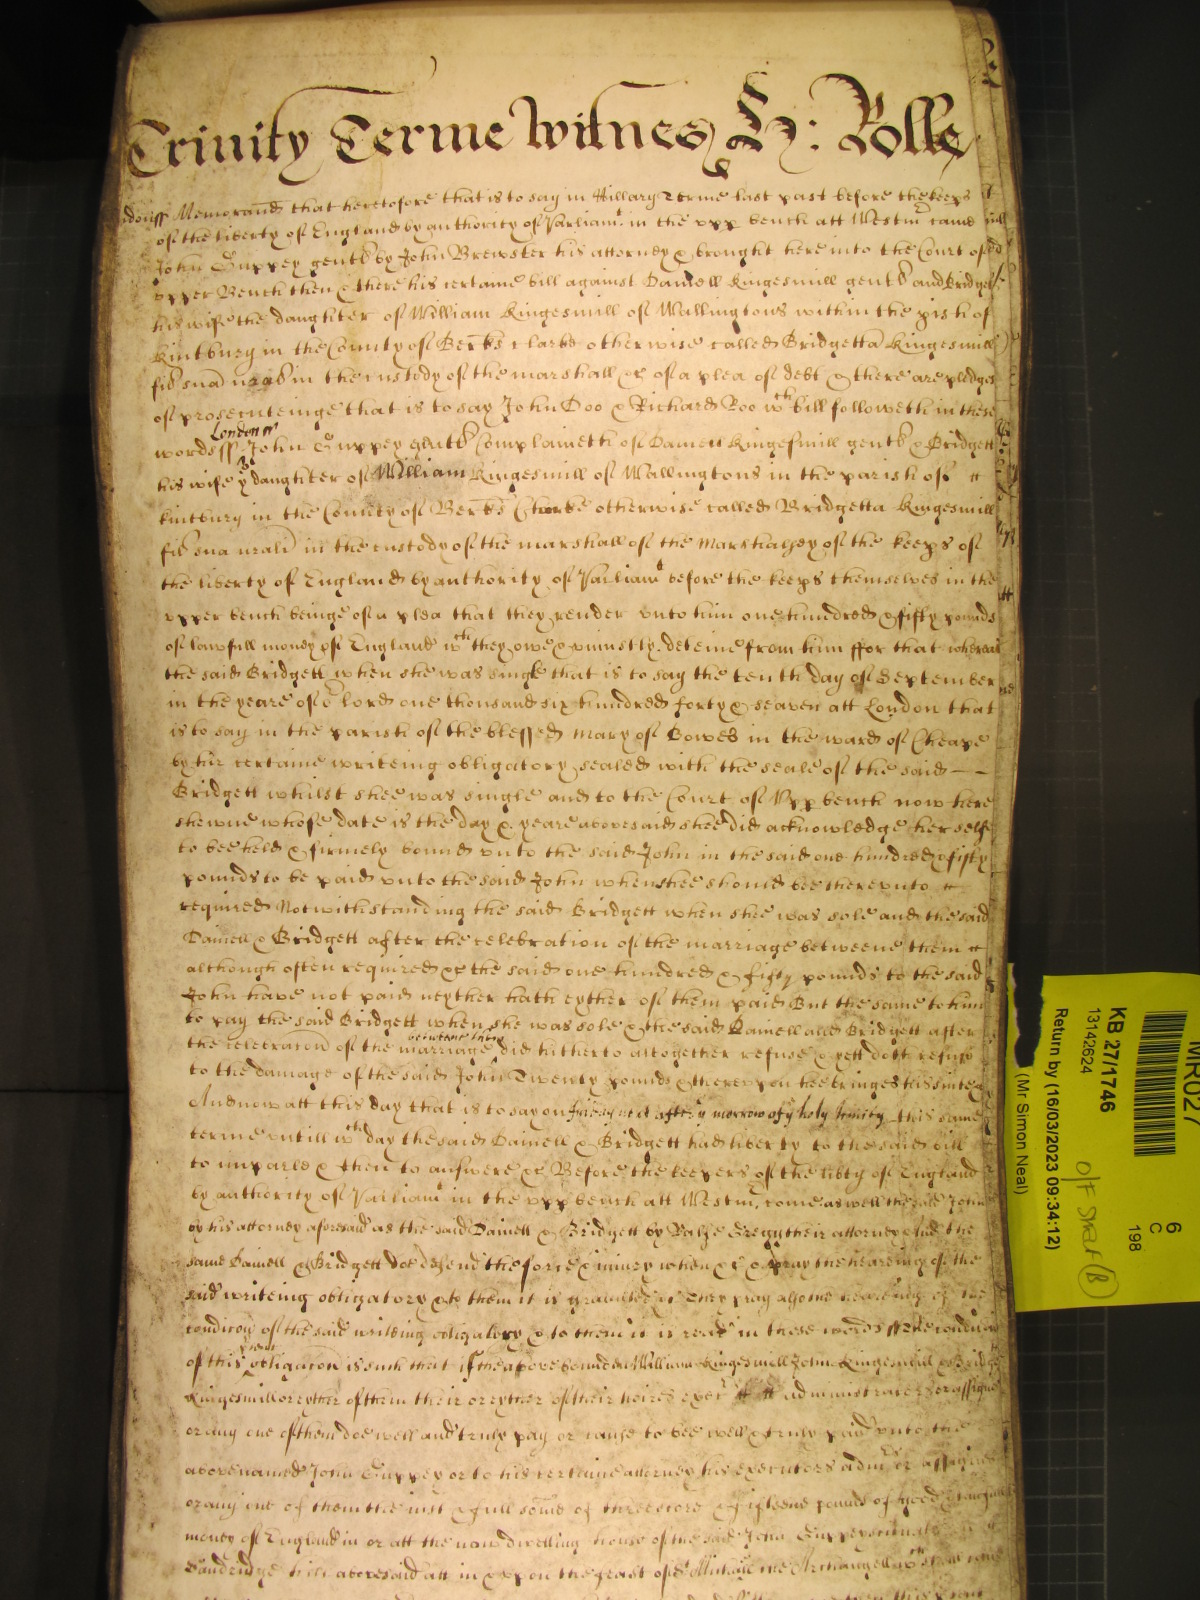 Trinity Terme Witnes H: Rolle
Memorand that heretofore that is to say in Hillary Terme last past before the keeps
of the liberty of England by authority of Parliamt in the upp bench att Westm came
John Guppey gent by John Brewster his attorney & brought here into the Court of
upper Bench then & there his certaine bill against Daniell Kingesmill gent and Bridgett
his wife the daughter of William Kingesmill of Wallingtons within the pish of
Kintbury in the County of Berks Clarke otherwise called Bridgetta Kingesmill
in the custody of the marshall &c of a plea of debt & there are pledges
of prosecuteinge that is to say John Doo & Richard Roo wch bill followeth in these
London ss
words ss John Guppey gent Complaineth of Daniell Kingesmill gent & Bridgett
his wife ye daughter of William Kingesmill of Wallingtons in the parish of
Kintbury in the County of Berks Clarke otherwise called Bridgetta Kingesmill
in the custody of the marshall of the Marshalsey of the keeps of
the liberty of England by authority of Parliamt before the keeps themselves in the
upper bench beinge of a plea that they render unto him one hundred & fifty pounds
of lawfull money of England wch they owe & uniustly deteine from him ffor that whereas
the said Bridgett when she was single that is to say the tenth day of September
in the yeare of or lord one thousand six hundred forty & seaven att London that
is to say in the parish of the blessed Mary of Bowes in the ward of Cheape
by hir certaine writeing obligatory sealed with the seale of the said
Bridgett whilst shee was single and to the Court of Upp bench now here
shewne whose date is the day & yeare abovesaid shee did acknowledge her selfe
to bee held & firmely bound unto the said John in the said one hundred & fifty
pounds to be paid unto the said John when shee should bee thereunto
required Notwithstanding the said Bridgett when shee was sole and the said
Daniell & Bridgett after the celebration of the marriage betweene them
although often required &c the said one hundred & fifty pounds to the said
John have not paid neyther hath eyther of them paid But the same to him
to pay the said Bridgett when she was sole & the said Daniell and Bridgett after
betweene them
the celebracon of the marriage did hitherto altogether refuse & yett doth refuse
to the damage of the said John Twenty pounds & thereupon hee bringes his suite
And now att this day that is to say on friday next after ye morrow of ye holy trinity this same
terme untill wch day the said Daniell & Bridgett had liberty to the said bill
to imparle & then to answere &c Before the keepers of the libty of England
by authority of Parliamt in the upp bench att Westm come as well the said John
by his attorney aforesaid as the said Daniell & Bridgett by their attorney And the
same Daniell & Bridgett doe defend the force & iniury when &c & pray the heareing of the
said writeing obligatory & to them it is graunted &c they pray also the heareing of the
condicon of the said writeing obligatory & to them it is read in these words ff The condicon
of this obligacon is such that if the above bounden William Kingesmell John Kingesmill & Bridgett
Kingesmill or eyther of them their or eyther of their heires exec administrators or assignes
or any one of them doe well and truly pay or cause to bee well & truly paid unto the
above named John Guppey or to his certeine attorney his executors adm or assignes
or any one of them the iust & full some of threescore & fifteene pounds of good & lawfull
money of England in or att the now dwelling house of the said John Guppey
abovesaid att in & upon the feast of St Michaell the Archangell
MR027
6
C
198
KB 27/1746
13142624
Return by (16/03/2023 09:34:12)
(Mr Simon Neal)
O/F Shelf B